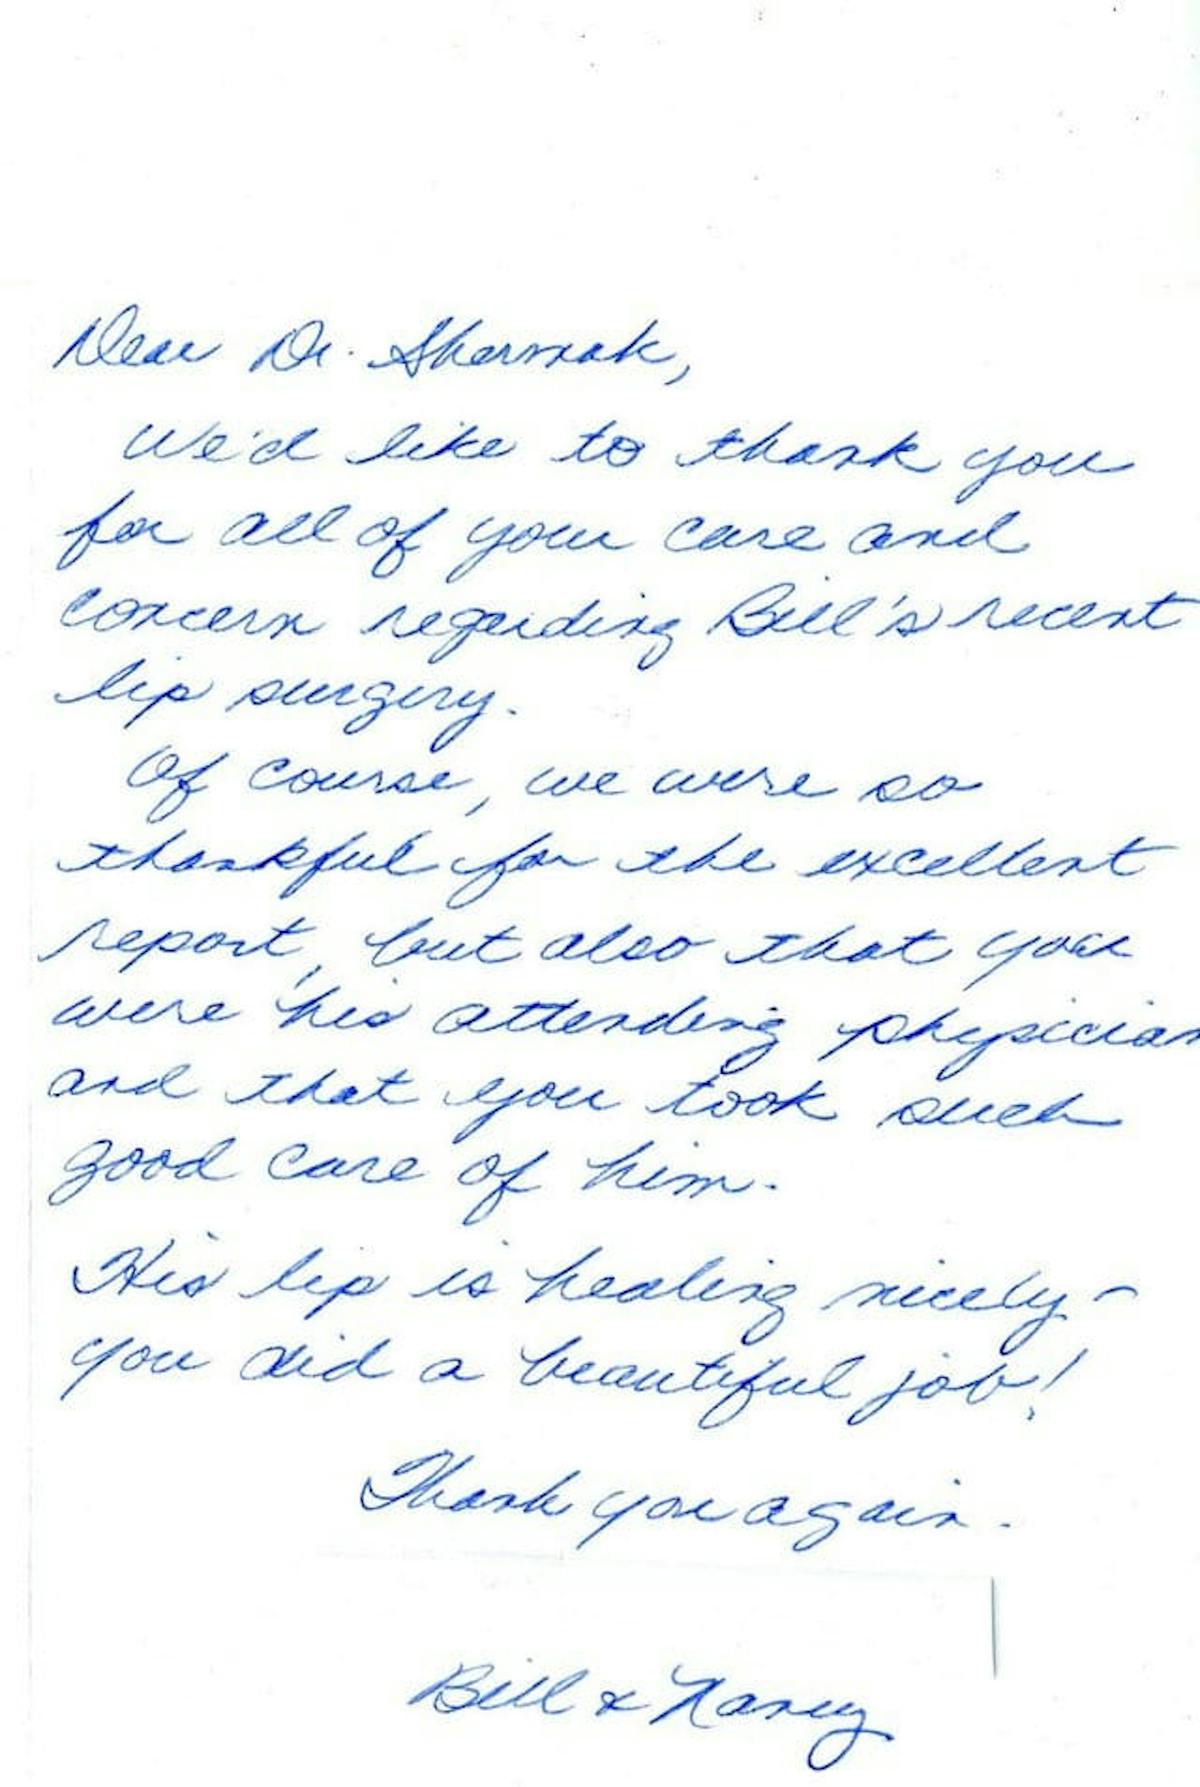 Dear Dr. Shermak,
We'd like to thank you
for all of your care and
concern regarding Bill's recent
lip surgery.
Of course, we were so
thankful for the excellent
report, but also that you
were his attending physician
and that you took such
good care of him.
His lip is healing nicely -
you did a beautiful job!
Thank you again.
Bill & Nancy